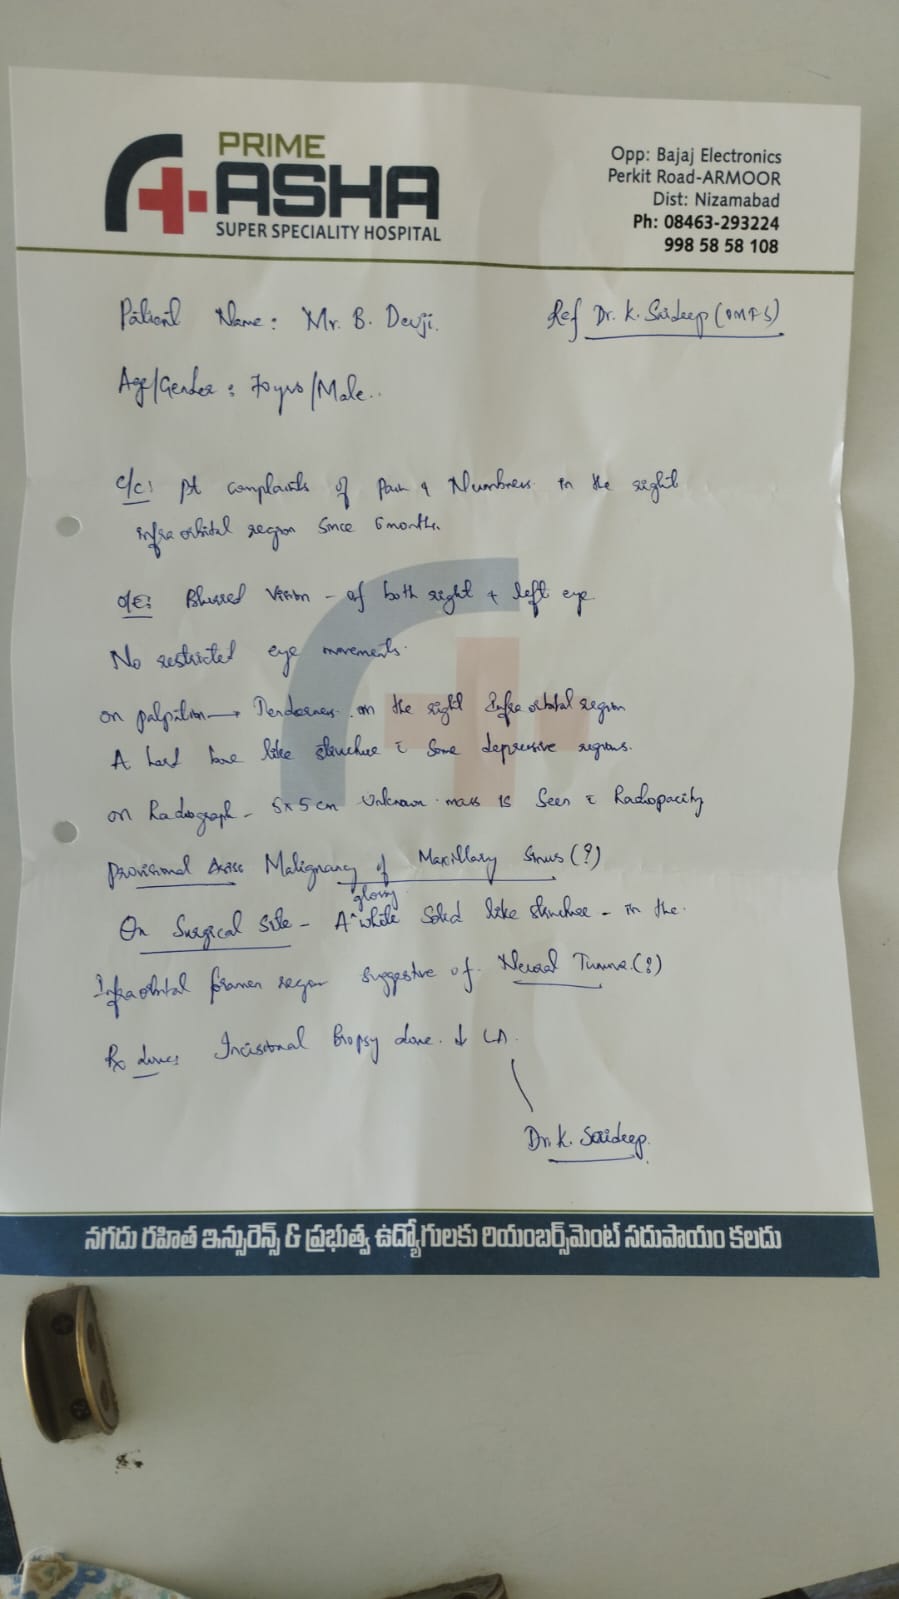 PRIME
ASHA
SUPER SPECIALITY HOSPITAL
Opp: Bajaj Electronics
Perkit Road-ARMOOR
Dist: Nizamabad
Ph: 08463-293224
998 58 58 108
Patient Name: Mr. B. Devji.
Ref Dr. K. Saideep (OMFS)
Age/Gender: 70yrs/Male..
C/C: pt complaints of pain & Numbness in the right
infraorbital region since 6 months.
O/E: Blurred Vision - of both right & left eye.
No restricted eye movements.
on palpation → Tenderness on the right Infraorbital region
A hard bone like structure c̄ some depressive regions.
on Radiograph - 5x5cm Unknown mass is seen c̄ Radiopacity
provisional Malignancy of Maxillary Sinus (?)
On Surgical site - A glossy white solid like structure - in the.
Infraorbital foramen region suggestive of Neural Tumor (?)
Rx done: Incisional Biopsy done ↓ LA.
Dr. K. Saideep.
నగదు రహిత ఇన్సురెన్స్ & ప్రభుత్వ ఉద్యోగులకు రియంబర్స్‌మెంట్ సదుపాయం కలదు